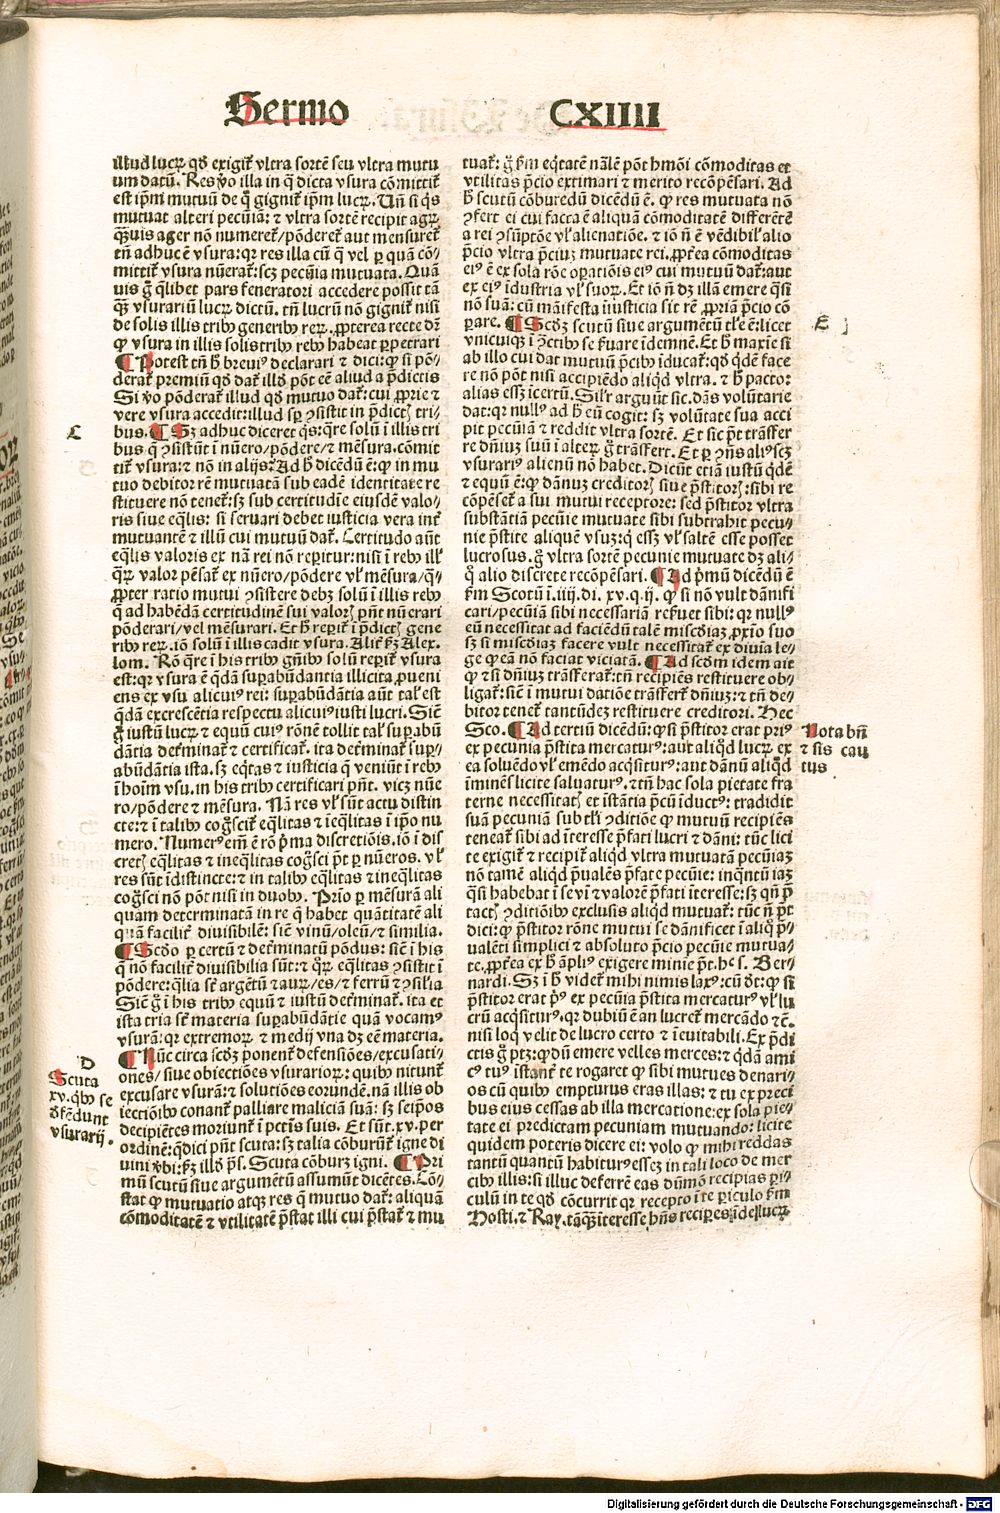 Sermo CXIIII
illud lucꝝ qḋ exigit᷑ vltra sortē seu vltra mutu
um datū. Res ꝟo illa in q̄ dicta vsura cōmittit᷑
est ip̄m mutuū de q̄ gignit᷑ ip̄m lucꝝ. Uñ si q̇s
mutuat alteri pecūiā: ⁊ vltra sortē recipit agꝝ
qq̄uis ager nō numeret᷑/pōderet᷑ aut mensuret᷑
tñ adhuc ē vsura: qꝛ res illa cū q̄ vel ꝑ quā cō-
mittit᷑ vsura nūerat᷑: scꝫ pecūia mutuata. Quā
uis ḡ q̄libet pars feneratori accedere possit tā
qꝫ vsurariū lucꝝ dictū. tñ lucrū nō gignit᷑ nisi
de solis illis tribꝰ generibꝰ reꝝ. ꝓpterea recte dr̄
ꝙ vsura in illis solis tribꝰ rebꝰ habeat ꝑpetrari
¶ Potest tñ h̄ breuiꝰ declarari ⁊ dici: ꝙ si pō-
derat᷑ premiū qḋ dat᷑ illḋ pōt eē aliud a p̄dictis
Si ꝟo pōderat᷑ illud qḋ mutuo dat᷑: cui ꝓprie ⁊
vere vsura accedit: illud sp̄ ꝯsistit in p̄dictꝭ tri-
bus. ¶ Sꝫ adhuc diceret q̇s: q̄re solū ī illis tri
bus q̄ ꝯsistūt ī nūero/pōdere/⁊ mēsura. cōmit
tit᷑ vsura: ⁊ nō in alijs? Ad h̄ dicēdū ē: ꝙ in mu
tuo debitor rem mutuatā sub eadē identitate re
stituere nō tenet᷑: sꝫ sub certitudīe eiusdē valo-
ris siue eq̄lis: si seruari debet iusticia vera int᷑
mutuantē ⁊ illū cui mutuū dat᷑. Certitudo aūt
eq̄lis valoris ex nā rei nō reꝑitur: nisi ī rebꝰ illꝭ
q̄ꝝ valor pēsat᷑ ex nūero/pōdere vl᷑ mēsura/q̄-
ꝓpter ratio mutui ꝯsistere debꝫ solū ī illis rebꝰ
q̄ ad habēdā certitudinē sui valorꝭ pn̄t nūerari
pōderari/vel mēsurari. Et h̄ reꝑit᷑ ī p̄dictꝭ gene
ribꝰ reꝝ. iō solū ī illis cadit vsura. Alit᷑ ẜꝫ Alex.
lom. Rō q̄re ī his tribꝰ gn̄ibꝰ solū reꝑit᷑ vsura
est: qꝛ vsura ē q̄dā suꝑabūdātia illicita ꝓueni
ens ex vsu alicuiꝰ rei: suꝑabūdātia aūt tal᷑ est
q̄dā excrescētia respectu alicuiꝰ iusti lucri. Sic̄
ḡ iustū lucꝝ ⁊ equū cuiꝰ rōnē tollit tal᷑ suꝑabū
dātia det̄minat᷑ ⁊ certificat᷑. ita det̄minat᷑ suꝑ-
abūdātia ista. sꝫ eq̇tas ⁊ iusticia q̄ veniūt ī rebꝰ
ī hoīm vsu. in his tribꝰ certificari pn̄t. vicꝫ nūe
ro/pōdere ⁊ mēsura. Nā res vl᷑ sūt actu distin
cte: ⁊ ī talibꝰ coḡscit᷑ eq̄litas ⁊ īeq̄litas ī ip̄o nu
mero. Numerꝰ em̄ ē rō p̄ma discretiōis. iō ī dis
cretꝭ eq̄litas ⁊ ineq̄litas coḡsci pt̄ ꝑ nūeros. vl᷑
res sūt īdistincte: ⁊ in talibꝰ eq̄litas ⁊ ineq̄litas
coḡsci nō pōt nisi in duobꝰ. Prīo ꝑ mēsurā ali
quam determinatā in re q̄ habet quātitatē ali
quā facilit᷑ diuisibilē: sic̄ vinū/oleū/⁊ similia.
¶ Scḋo ꝑ certū ⁊ det̄minatū pōdus: sic̄ ī his
q̄ nō facilit᷑ diuisibilia sūt: ⁊ q̄ꝝ eq̄litas ꝯsistit ī
pōdere: q̄lia st̄ argētū ⁊ auꝝ/es/⁊ ferrū ⁊ ꝯsil᷑ia
Sic̄ ḡ ī his tribꝰ equū ⁊ iustū det̄minat᷑. ita et
ista tria st̄ materia suꝑabūdātie quā vocamꝰ
vsurā: qꝛ extremoꝝ ⁊ medij vna dꝫ eē materia.
¶ Nūc circa scḋꝫ ponent᷑ defensiōes/excusati-
ones/siue obiectiōes vsurarioꝝ: quibꝰ nitunt᷑
excusare vsurā: ⁊ solutiōes eorundē. nā illis ob
iectiōibꝰ conant᷑ palliare maliciā suā: sꝫ seip̄os
decipiētes moriunt᷑ ī pctīs suis. Et sūt. xv. per
ordinē: q̇ dici pn̄t scuta: sꝫ talia cōburūt᷑ igne di
uini ꝟbi: ẜꝫ illḋ ps̄. Scuta cōburꝫ igni. ¶ Pri
mū scutū siue argumētū assumūt dicētes. Cō-
stat ꝙ mutuatio atqꝫ res q̄ mutuo dat᷑: aliquā
cōmoditatē ⁊ vtilitatē p̄stat illi cui p̄stat᷑ ⁊ mu
C
D
Scuta
xv. qbꝰ se
d̄fēdunt
vsurarij.
tuat᷑: ḡ ẜm eq̇tatē nālē pōt hmōi cōmoditas et
vtilitas p̄cio extimari ⁊ merito recōpēsari. Ad
h̄ scutū cōburēdū dicēdū ē. ꝙ res mutuata nō
ꝯfert ei cui facta ē aliquā cōmoditatē differētē
a rei ꝯsūptōe vl᷑ alienatiōe. ⁊ iō n̄ ē vēdibil᷑ alio
p̄cio vltra p̄ciuꝫ mutuate rei. ꝓpt̄ea cōmoditas
eiꝰ ē ex sola rōe oꝑatiōis eiꝰ cui mutuū dat᷑: aut
ex eiꝰ īdustria vl᷑ suoꝝ. Et iō n̄ dꝫ illā emere q̄si
nō suā: cū māifesta īiusticia sit rē ꝓpriā p̄cio cō
ꝑare. ¶ Scḋꝫ scutū siue argumētū tl᷑e ē: licet
vnicuiqꝫ ī ꝯctibꝰ se ẜuare idemnē. Et h̄ maxīe si
ab illo cui dat mutuū p̄cibꝰ īducat᷑: qḋ q̇dē face
re nō pōt nisi accipiēdo aliqḋ vltra. ⁊ h̄ pacto:
alias esꝫ īcertū. Sil᷑r arguūt sic. dās volūtarie
dat: qꝛ nullꝰ ad h̄ eū cogit: sꝫ volūtate sua acci
pit pecūiā ⁊ reddit vltra sortē. Et sic p̄t trāsfer
re dn̄iuꝫ suū ī alteꝝ ḡ trāsfert. Et ꝑ ꝯn̄s aliꝰ scꝫ
vsurariꝰ alienū nō habet. Dicūt etiā iustū q̇dē
⁊ equū ē: ꝙ dānuꝫ creditorꝭ siue p̄stitorꝭ: sibi re
cōpēset᷑ a sui mutui receptore: sed p̄stitor vltra
substātiā pecūie mutuate sibi subtrahit pecu-
nie p̄stite aliquē vsuꝫ: q̇ esꝫ vl᷑ saltē esse posset
lucrosus. ḡ vltra sortē pecunie mutuate dꝫ ali-
q̊ alio discrete recōpēsari. ¶ Ad p̄mū dicēdū ē
ẜm Scotū ī. iiij. di. xv. q. ij. ꝙ si nō vult dānifi
cari/pecūiā sibi necessariā reẜuet sibi: qꝛ nullꝰ
eū necessitat ad faciēdū talē miscḋiaꝫ ꝓxīo suo
sꝫ si miscḋiaꝫ facere vult necessitat᷑ ex diuīa le-
ge ꝙ eā nō faciat viciatā. ¶ Ad scḋm idem ait
ꝙ ⁊ si dn̄iuꝫ trāsferat᷑: tñ recipiēs restituere ob-
ligat᷑: sic̄ ī mutui datiōe trāsfert᷑ dn̄iuꝫ: ⁊ tñ de-
bitor tenet᷑ tantūdeꝫ restituere creditori. Hec
Sco. ¶ Ad tertiū dicēdū: ꝙ si p̄stitor erat priꝰ
ex pecunia p̄stita mercaturꝰ: aut aliqḋ lucꝝ ex
ea soluēdo vl᷑ emēdo acq̇siturꝰ: aut dānū aliqḋ
īminēs licite saluaturꝰ. ⁊ tñ hac sola pietate fra
terne necessitatꝭ et īstātia p̄cū īductꝰ: tradidit
suā pecuniā sub tl᷑i ꝯditiōe ꝙ mutuū recipiēs
teneat᷑ sibi ad īteresse p̄fati lucri ⁊ dāni: tūc lici
te exigit᷑ ⁊ recipit᷑ aliqḋ vltra mutuatā pecūiaꝫ
nō tamē aliqḋ p̄ualēs p̄fate pecūie: inq̄ntū iaꝫ
q̄si habebat ī se vī ⁊ valorē p̄fati īteresse: sꝫ qn̄ p̄
tactꝭ ꝯditiōibꝰ exclusis aliqḋ mutuat᷑: tūc n̄ p̄t
dici: ꝙ p̄stitor rōne mutui se dānificet ī aliq̊ p̄-
ualēti simplici ⁊ absoluto p̄cio pecūie mutua-
te. ꝓpt̄ea ex h̄ āpliꝰ exigere minīe p̄t. hec s. Ber-
nardi. Sꝫ ī h̄ videt᷑ mihi nimis laxꝰ: cū d̄t: ꝙ si
p̄stitor erat pꝰ ex pecūia p̄stita mercaturꝰ vl᷑ lu
crū acq̇siturꝰ. qꝛ dubiū ē an lucret᷑ mercādo ⁊c̄.
nisi loq̇ velit de lucro certo ⁊ īeuitabili. Ex p̄di
ctis ḡ ptꝫ: ꝙ dū emere velles merces: ⁊ q̇dā ami
cꝰ tuꝰ istant᷑ te rogaret ꝙ sibi mutues denari-
os cū quibꝰ empturus eras illas: ⁊ tu ex preci
bus eius cessas ab illa mercatione: ex sola pie-
tate ei predictam pecuniam mutuando: licite
quidem poteris dicere ei: volo ꝙ mihi reddas
tantū quantū habiturꝰ esseꝫ in tali loco de mer
cibꝰ illis: si illuc deferrē eas dūmō recipias ꝑi-
culū in te qḋ cōcurrit qꝛ recepto ī te ꝑiculo ẜm
Hosti. ⁊ Ray. tāqꝫ īteresse hn̄s reciꝑes īde lucꝝ
E
Nota bn̄
⁊ sis cau
tus
Digitalisierung gefördert durch die Deutsche Forschungsgemeinschaft - DFG